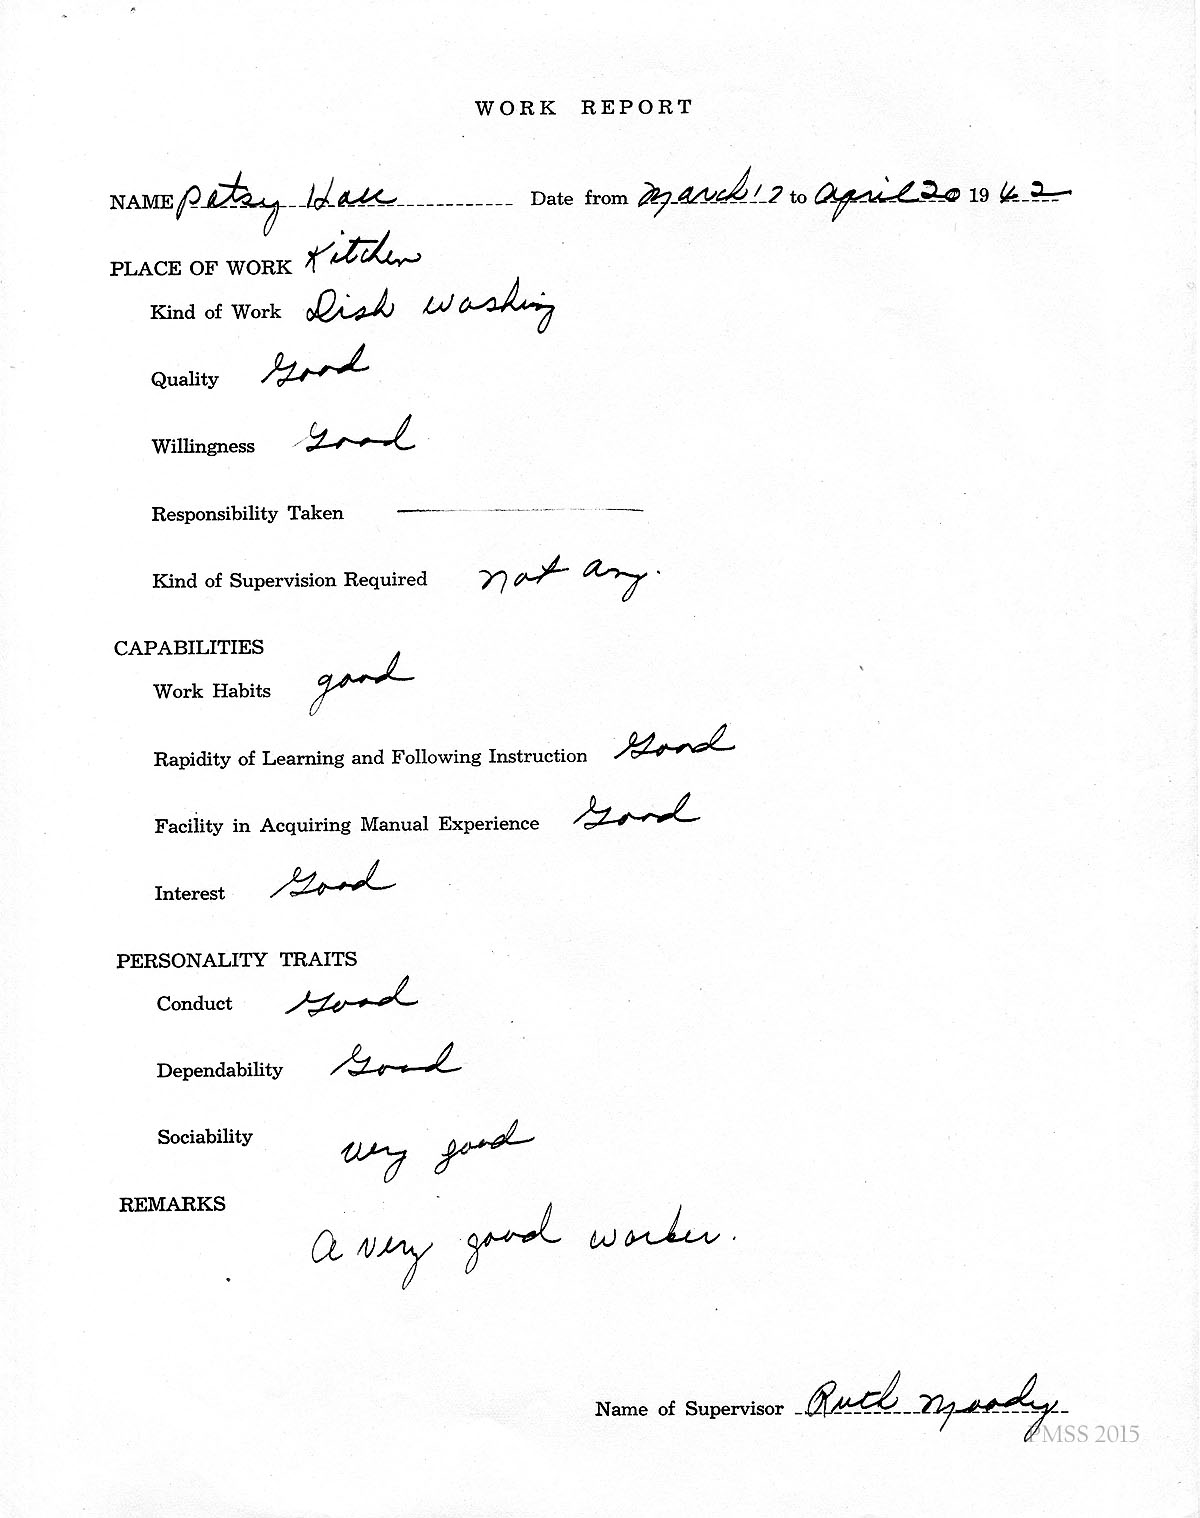 WORK REPORT
NAME Patsy Hall Date from March 17 to April 20 1942
PLACE OF WORK Kitchen
Kind of Work Dish washing
Quality Good
Willingness Good
Responsibility Taken
Kind of Supervision Required not any.
CAPABILITIES
Work Habits good
Rapidity of Learning and Following Instruction Good
Facility in Acquiring Manual Experience Good
Interest Good
PERSONALITY TRAITS
Conduct Good
Dependability Good
Sociability very good
REMARKS
A very good worker.
Name of Supervisor Ruth Moody
PMSS 2015